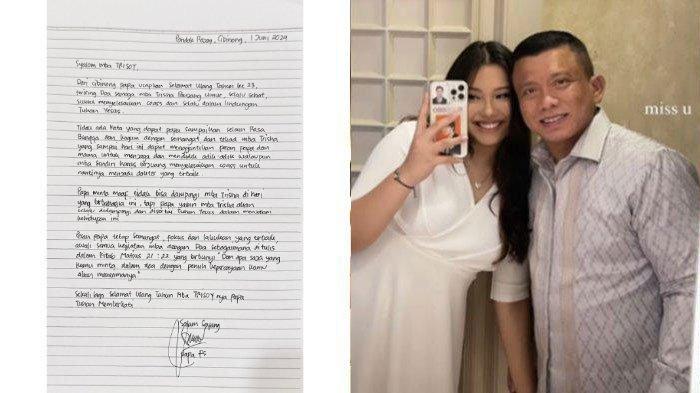 Pondok Rajeg, Cibinong, 1 Juni 2024
Syalom mba TRISOY,
Dari cibinong papa ucapkan Selamat Ulang Tahun ke 23,
teriring Doa semoga mba Trisha Panjang Umur, selalu sehat,
sukses menyelesaikan coass dan selalu dalam lindungan
Tuhan Yesus.
Tidak ada kata yang dapat papa sampaikan selain Rasa
Bangga dan kagum dengan semangat dan tekad mba Trisha
yang sampai hari ini dapat menggantikan peran papa dan
mama untuk menjaga dan mendidik adik adik walaupun
mba sendiri harus berjuang menyelesaikan coass untuk
nantinya menjadi dokter yang terbaik.
Papa minta maaf tidak bisa dampingi mba Trisha di hari
yang berbahagia ini, tapi papa yakin mba Trisha akan
selalu didampingi dan disertai Tuhan Yesus dalam menjalani
kehidupan ini.
Pesan papa tetap semangat, fokus dan lakukan yang terbaik,
awali semua kegiatan mba dengan Doa sebagaimana ditulis
dalam Kitab Matius 21:22 yang bertunyi "Dan apa saja yang
kamu minta dalam Doa dengan penuh kepercayaan kamu
akan menerimanya"
Sekali lagi Selamat Ulang Tahun Mba TRISOY nya papa
Tuhan Memberkati
Salam Sayang
Papa FS
miss u